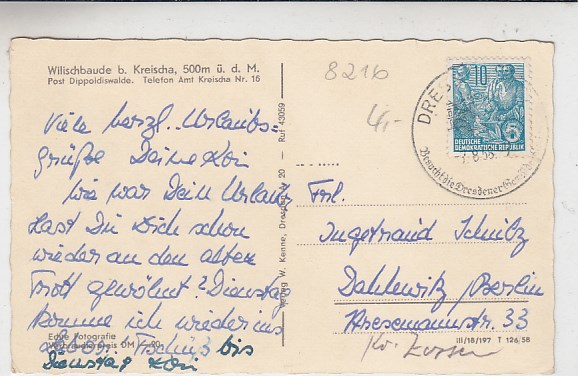 Wilischbaude b. Kreischa, 500m ü. d. M.
Post Dippoldiswalde. Telefon Amt Kreischa Nr. 16
8216
4,-
Viele herzl. Urlaubs-
grüße Deine Kori
Wie war Dein Urlaub
Hast Du Dich schon
wieder an den alten
Trott gewöhnt? Dienstag
komme ich wieder ins
Tschüß bis
Dienstag Kori
Echte Fotografie
Verbraucherpreis DM -.20
Verlag W. Kenne, Dresden N 20 – Ruf 43059
10
DEUTSCHE
DEMOKRATISCHE REPUBLIK
DRES
Besucht die Dresdener
Frl.
Ingetraud Schulz
Dahlewitz/Berlin
Riesemannstr. 33
Kr. Zossen
III/18/197 T 126/58